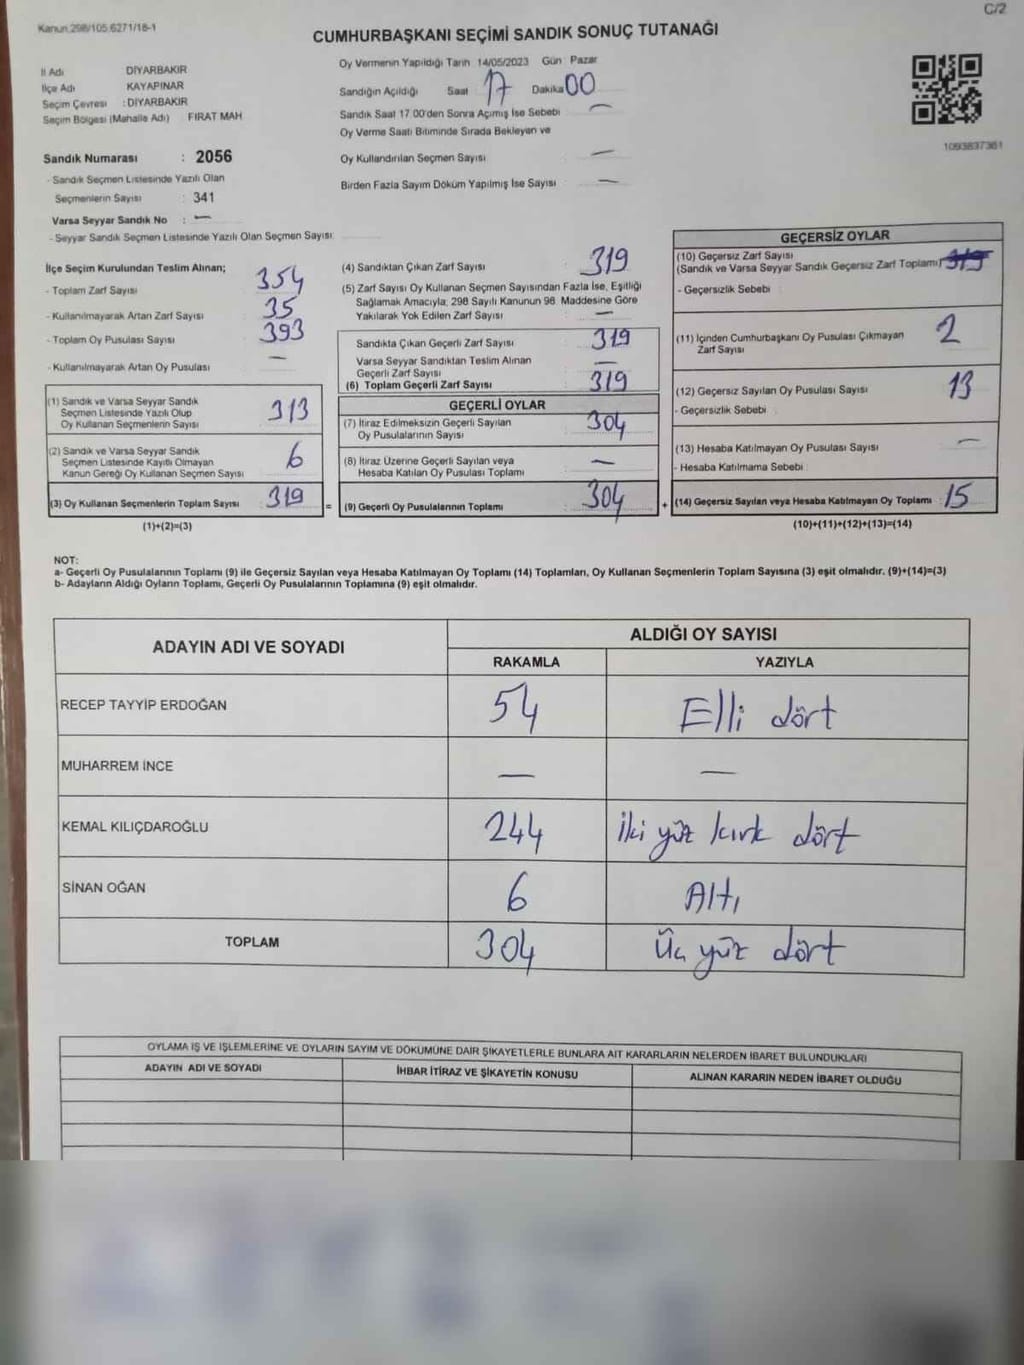 C/2
Kanun:298/105.6271/18-1
CUMHURBAŞKANI SEÇİMİ SANDIK SONUÇ TUTANAĞI
İl Adı DİYARBAKIR
İlçe Adı KAYAPINAR
Seçim Çevresi : DİYARBAKIR
Seçim Bölgesi (Mahalle Adı) FIRAT MAH
Sandık Numarası : 2056
- Sandık Seçmen Listesinde Yazılı Olan
Seçmenlerin Sayısı : 341
Varsa Seyyar Sandık No : —
- Seyyar Sandık Seçmen Listesinde Yazılı Olan Seçmen Sayısı:
Oy Vermenin Yapıldığı Tarih 14/05/2023 Gün Pazar
Sandığın Açıldığı Saat 17 Dakika 00
Sandık Saat 17.00'den Sonra Açmış İse Sebebi —
Oy Verme Saati Bitiminde Sırada Bekleyen ve
Oy Kullandırılan Seçmen Sayısı —
Birden Fazla Sayım Döküm Yapılmış İse Sayısı —
1093837361
İlçe Seçim Kurulundan Teslim Alınan;
- Toplam Zarf Sayısı 354
- Kullanılmayarak Artan Zarf Sayısı 35
- Toplam Oy Pusulası Sayısı 393
- Kullanılmayarak Artan Oy Pusulası —
(1) Sandık ve Varsa Seyyar Sandık
Seçmen Listesinde Yazılı Olup
Oy Kullanan Seçmenlerin Sayısı 313
(2) Sandık ve Varsa Seyyar Sandık
Seçmen Listesinde Kayıtlı Olmayan
Kanun Gereği Oy Kullanan Seçmen Sayısı 6
(3) Oy Kullanan Seçmenlerin Toplam Sayısı 319
(1)+(2)=(3)
(4) Sandıktan Çıkan Zarf Sayısı 319
(5) Zarf Sayısı Oy Kullanan Seçmen Sayısından Fazla İse, Eşitliği
Sağlamak Amacıyla, 298 Sayılı Kanunun 98. Maddesine Göre
Yakılarak Yok Edilen Zarf Sayısı —
Sandıkta Çıkan Geçerli Zarf Sayısı 319
Varsa Seyyar Sandıktan Teslim Alınan
Geçerli Zarf Sayısı —
(6) Toplam Geçerli Zarf Sayısı 319
GEÇERLİ OYLAR
(7) İtiraz Edilmeksizin Geçerli Sayılan
Oy Pusulalarının Sayısı 304
(8) İtiraz Üzerine Geçerli Sayılan veya
Hesaba Katılan Oy Pusulası Toplamı —
= (9) Geçerli Oy Pusulalarının Toplamı 304
GEÇERSİZ OYLAR
(10) Geçersiz Zarf Sayısı
(Sandık ve Varsa Seyyar Sandık Geçersiz Zarf Toplamı) 319
- Geçersizlik Sebebi :
(11) İçinden Cumhurbaşkanı Oy Pusulası Çıkmayan
Zarf Sayısı 2
(12) Geçersiz Sayılan Oy Pusulası Sayısı 13
- Geçersizlik Sebebi :
(13) Hesaba Katılmayan Oy Pusulası Sayısı —
- Hesaba Katılmama Sebebi :
+ (14) Geçersiz Sayılan veya Hesaba Katılmayan Oy Toplamı : 15
(10)+(11)+(12)+(13)=(14)
NOT:
a- Geçerli Oy Pusulalarının Toplamı (9) ile Geçersiz Sayılan veya Hesaba Katılmayan Oy Toplamı (14) Toplamları, Oy Kullanan Seçmenlerin Toplam Sayısına (3) eşit olmalıdır. (9)+(14)=(3)
b- Adayların Aldığı Oyların Toplamı, Geçerli Oy Pusulalarının Toplamına (9) eşit olmalıdır.
ADAYIN ADI VE SOYADI ALDIĞI OY SAYISI
RAKAMLA YAZIYLA
RECEP TAYYİP ERDOĞAN 54 Elli dört
MUHARREM İNCE — —
KEMAL KILIÇDAROĞLU 244 İki yüz kırk dört
SİNAN OĞAN 6 Altı
TOPLAM 304 Üç yüz dört
OYLAMA İŞ VE İŞLEMLERİNE VE OYLARIN SAYIM VE DÖKÜMÜNE DAİR ŞİKAYETLERLE BUNLARA AİT KARARLARIN NELERDEN İBARET BULUNDUKLARI
ADAYIN ADI VE SOYADI İHBAR İTİRAZ VE ŞİKAYETİN KONUSU ALINAN KARARIN NEDEN İBARET OLDUĞU